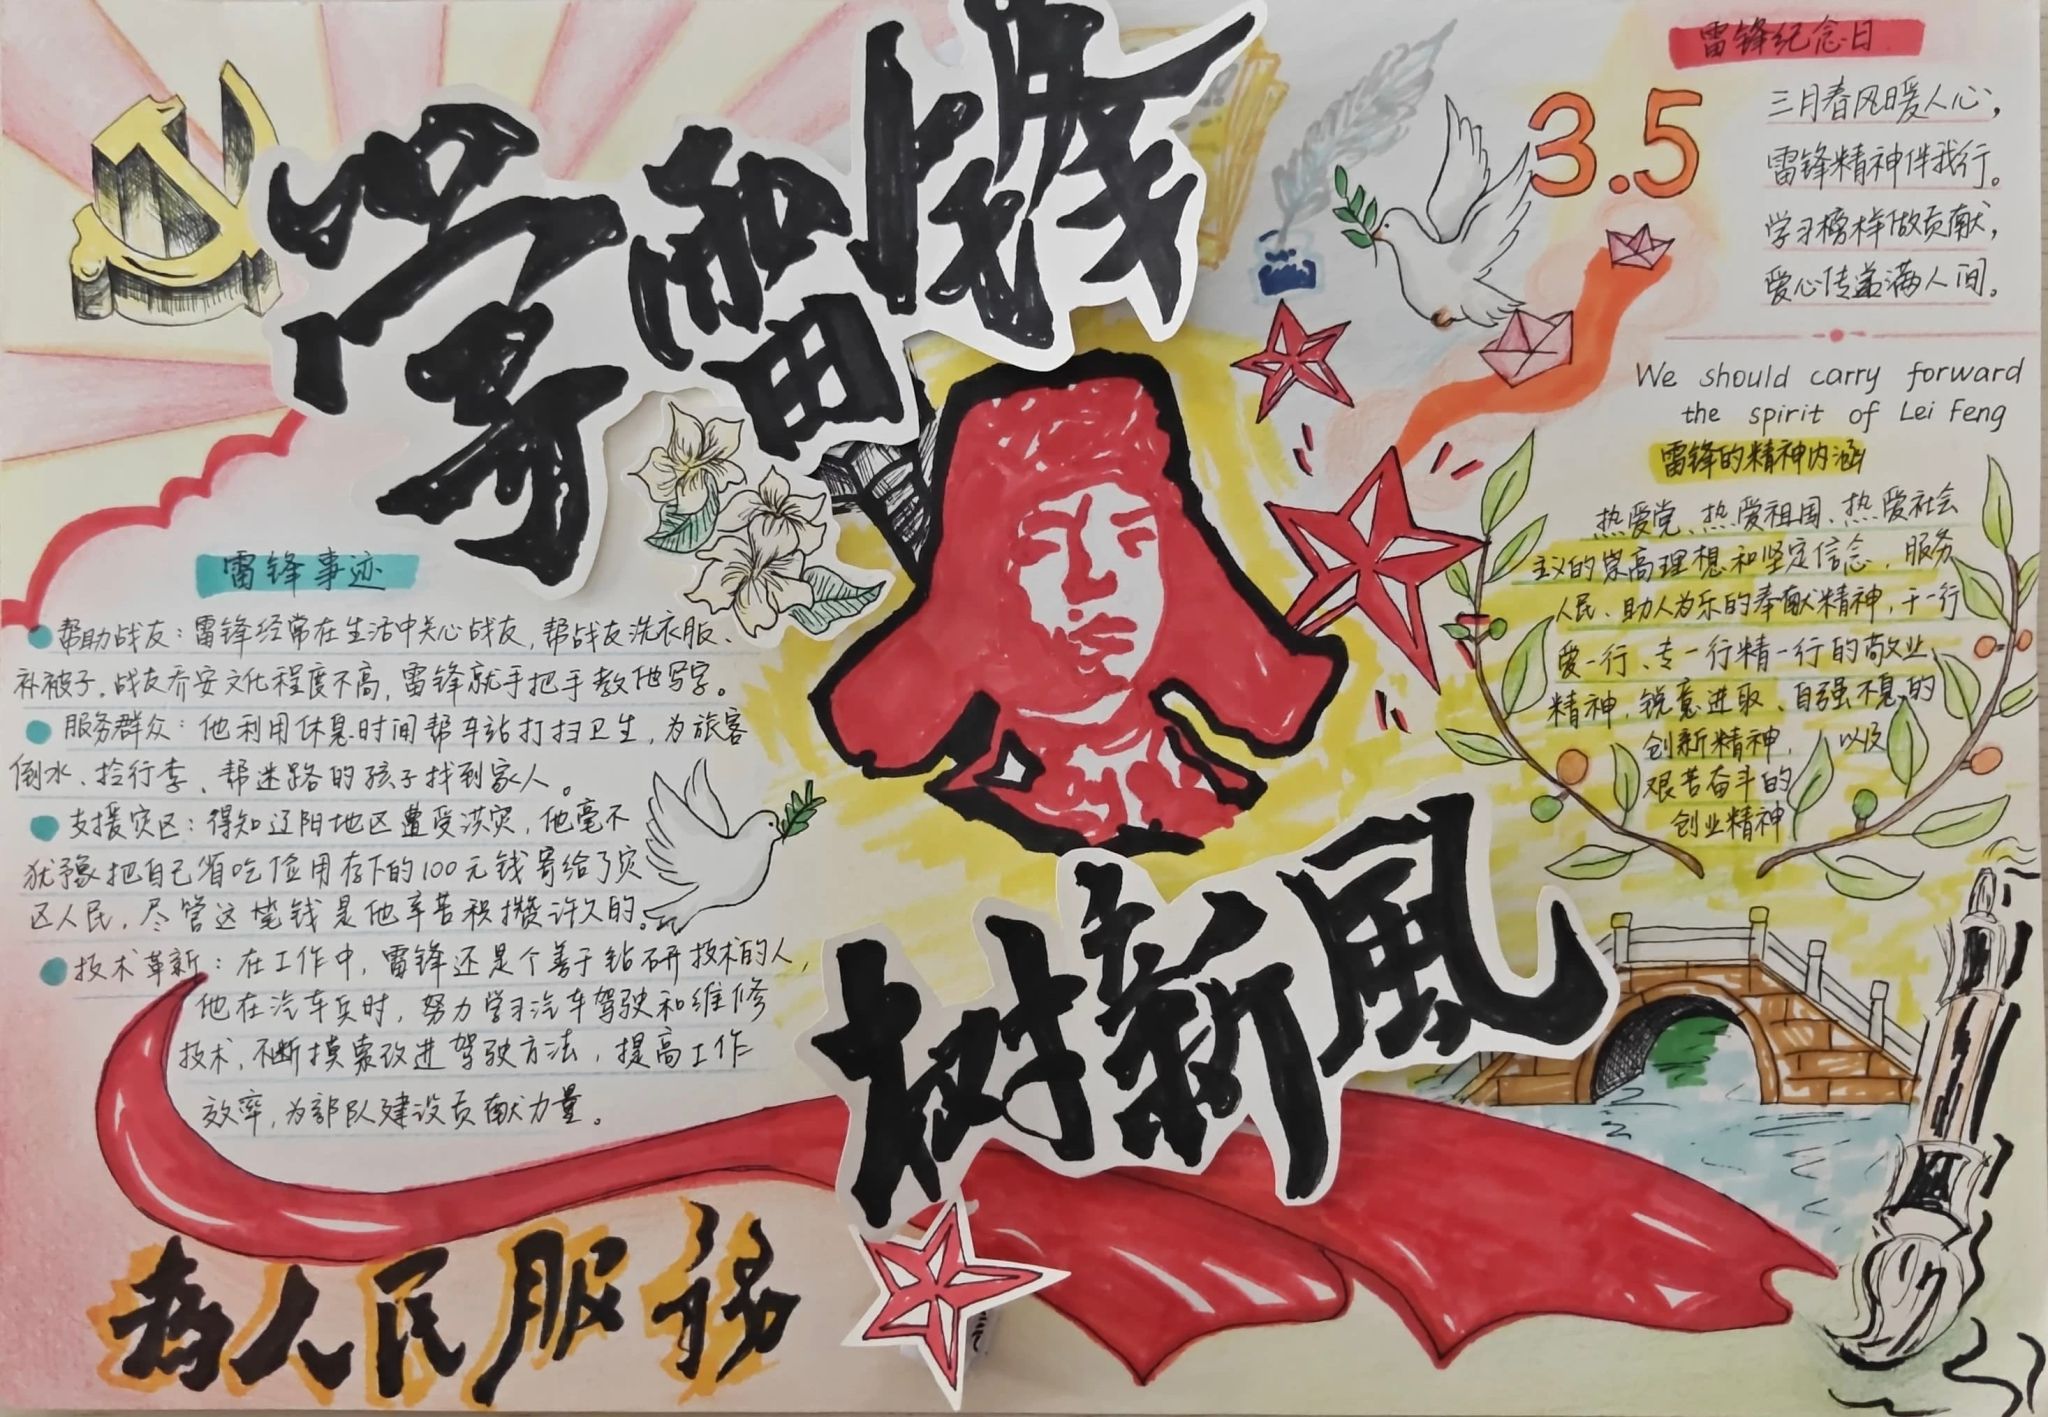 学雷锋
树新風
雷锋事迹
帮助战友：雷锋经常在生活中关心战友，帮战友洗衣服、
补被子。战友乔安文化程度不高，雷锋就手把手教他写字。
服务群众：他利用休息时间帮车站打扫卫生，为旅客
倒水、捡行李、帮迷路的孩子找到家人。
支援灾区：得知辽阳地区遭受洪灾，他毫不
犹豫把自己省吃俭用存下的100元钱寄给了灾
区人民，尽管这笔钱是他辛苦积攒许久的。
技术革新：在工作中，雷锋还是个善于钻研技术的人，
他在汽车兵时，努力学习汽车驾驶和维修
技术，不断摸索改进驾驶方法，提高工作
效率，为部队建设贡献力量。
为人民服务
雷锋纪念日
3.5
三月春风暖人心，
雷锋精神伴我行。
学习榜样做贡献，
爱心传递满人间。
We should carry forward
the spirit of Lei Feng
雷锋的精神内涵
热爱党、热爱祖国、热爱社会
主义的崇高理想和坚定信念，服务
人民、助人为乐的奉献精神，干一行
爱一行、专一行精一行的敬业
精神，锐意进取、自强不息的
创新精神，以及
艰苦奋斗的
创业精神